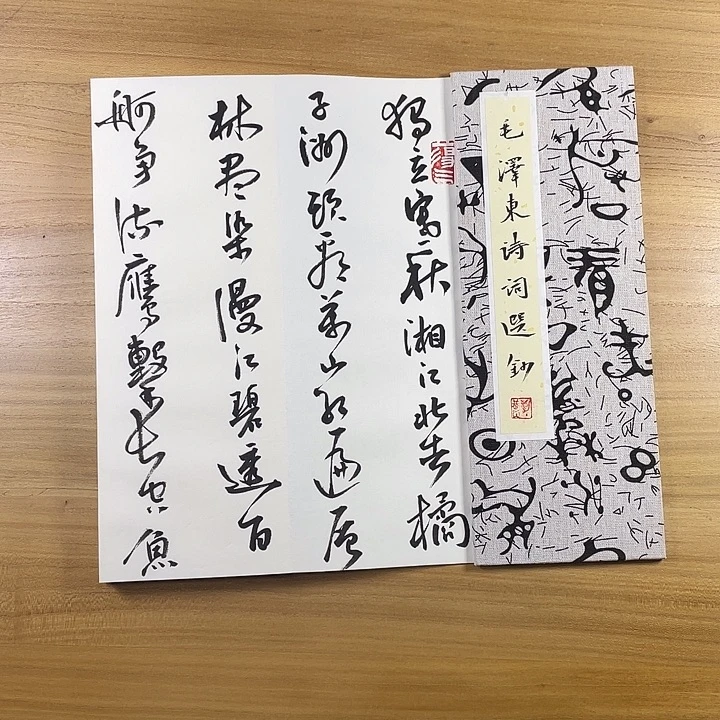 毛澤東诗词選鈔
獨立寒秋湘江北去橘
子洲頭看萬山红遍层
林盡染漫江碧透百
舸争流鷹擊長空魚